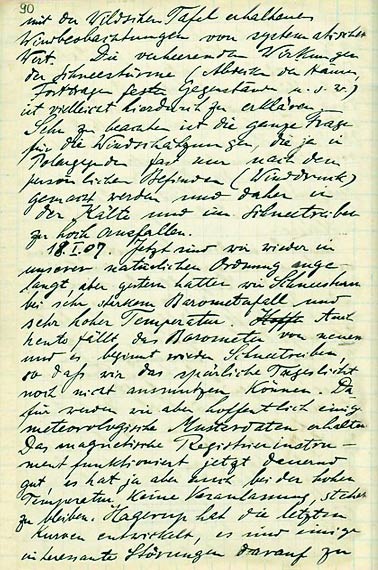 90
mit der Wildschen Tafel erhaltenen
Windbeobachtungen von systematischem
Wert. Die verheerenden Wirkungen
der Schneestürme (Abreißen der
Forttragen fester Gegenstände u.s.w.)
ist vielleicht hierdurch zu erklären.
Sehr zu beachten ist die ganze Frage
für die Windschätzungen, die ja in
Polargegenden fast nur nach dem
persönlichen Befinden (Winddruck)
gemacht werden und daher in
der Kälte und im Schneetreiben
zu hoch ausfallen.
18.I.07. Jetzt sind wir wieder in
unserer natürlichen Ordnung ange-
langt, aber gestern hatten wir Schneesturm
bei sehr starkem Barometerfall und
sehr hoher Temperatur. Auch
heute fällt das Barometer von neuem
und es beginnt wieder Schneetreiben,
so daß wir das spärliche Tageslicht
noch nicht ausnutzen können. Da-
für werden wir aber hoffentlich einige
meteorologische Musterdaten erhalten.
Das magnetische Registrierinstru-
ment funktioniert jetzt dauernd
gut, es hat ja aber auch bei der hohen
Temperatur keine Veranlassung, stehen
zu bleiben. Hagerup hat die letzten
Kurven entwickelt, es sind einige
interessante Störungen darauf zu